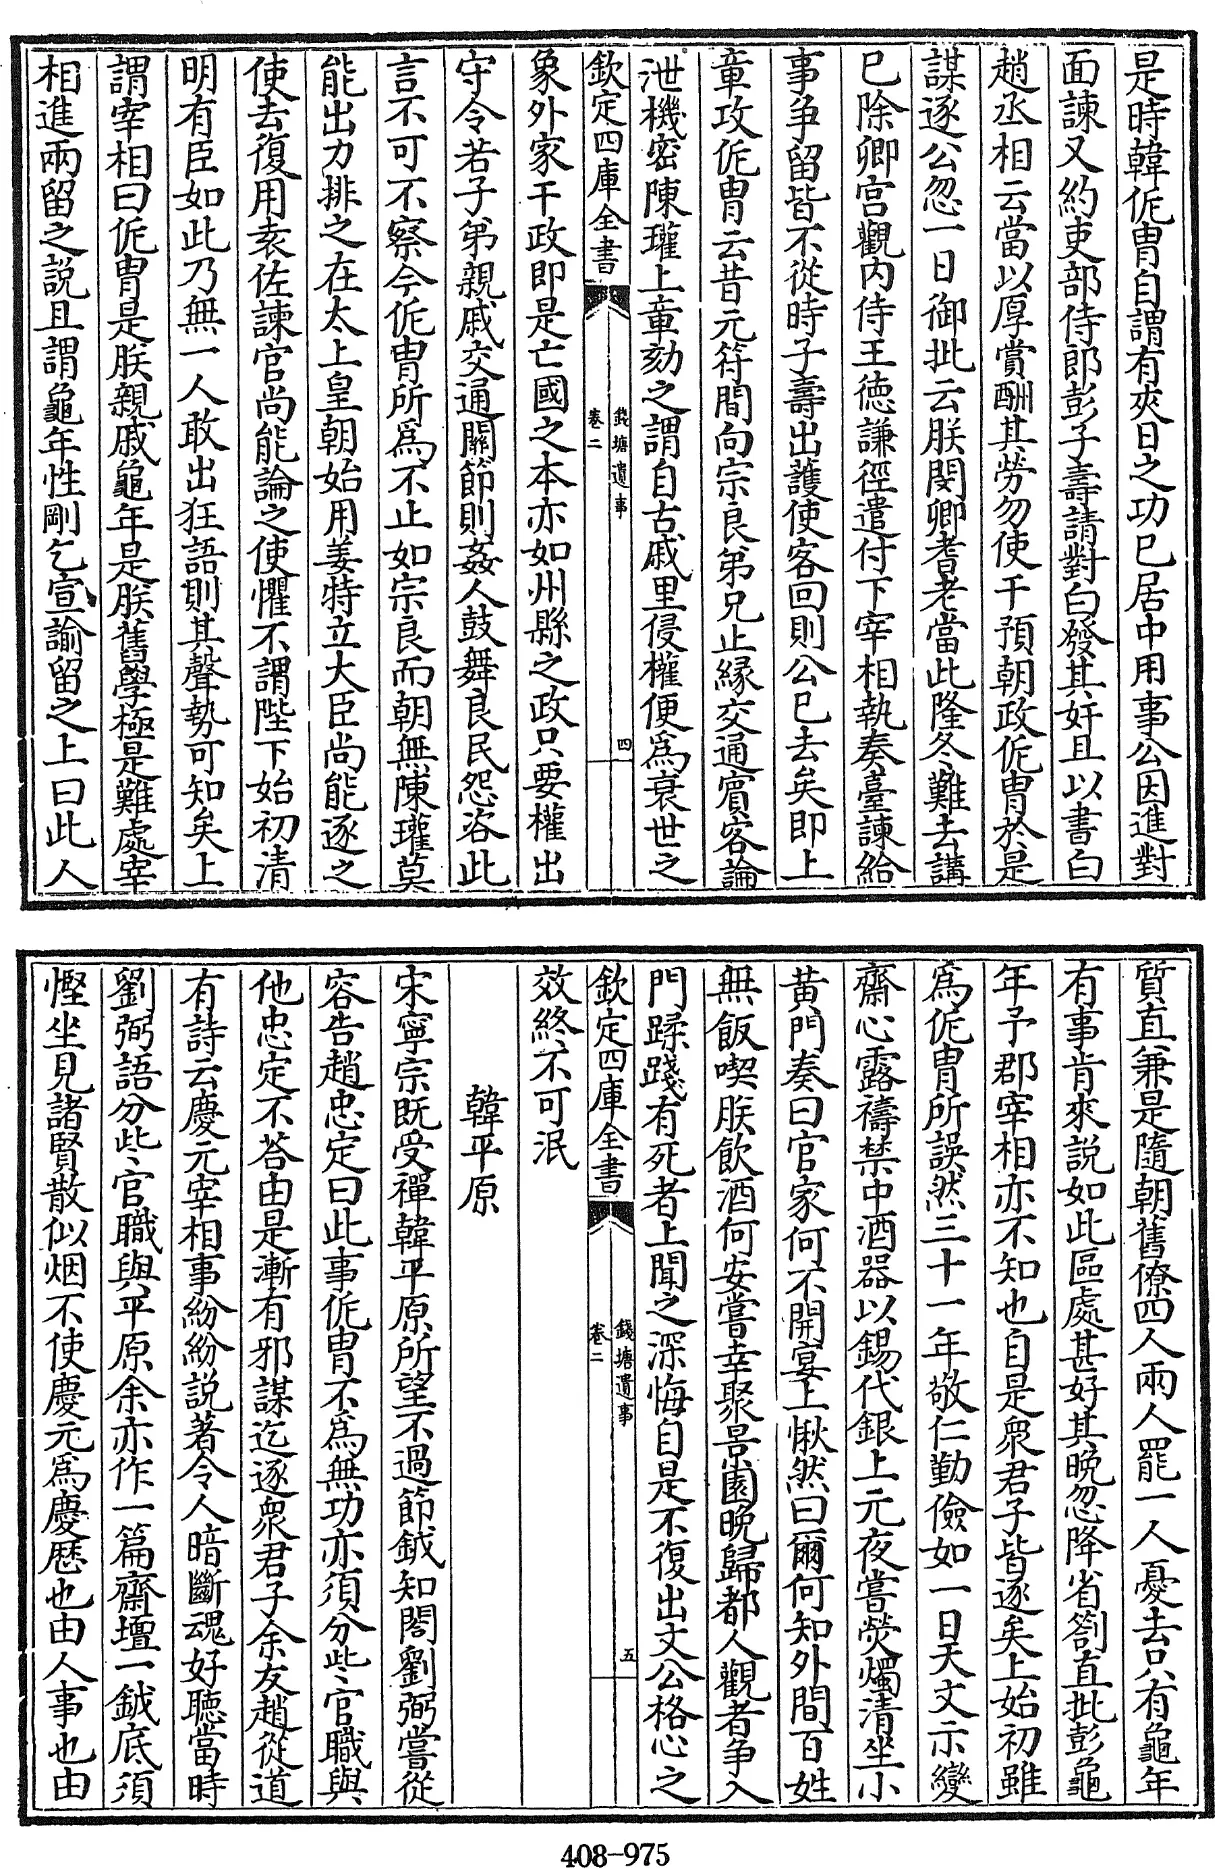 是時韓侂胄自謂有夾日之功已居中用事公因進對
面諫又約吏部侍郎彭子壽請對白發其奸且以書白
趙丞相云當以厚賞酬其勞勿使干預朝政侂胄於是
謀逐公忽一日御批云朕閔卿耆老當此隆冬難去講
已除卿宫觀内侍王德謙徑遣付下宰相執奏臺諫給
事争留皆不從時子壽出護使客回則公已去矣即上
章攻侂胄云昔元符間向宗良弟兄止緣交通賓客論
泄機密陳瓘上章劾之謂自古戚里侵權便為衰世之
欽定四庫全書
錢塘遺事
卷二
四
象外家干政即是亡國之本亦如州縣之政只要權出
守令若子弟親戚交通關節則姦人鼓舞良民怨咨此
言不可不察今侂胄所為不止如宗良而朝無陳瓘莫
能出力排之在太上皇朝始用姜特立大臣尚能逐之
使去復用袁佐諫官尚能論之使懼不謂陛下始初清
明有臣如此乃無一人敢出狂語則其聲勢可知矣上
謂宰相曰侂胄是朕親戚龜年是朕舊學極是難處宰
相進兩留之説且謂龜年性剛乞宣諭留之上曰此人
質直兼是隨朝舊僚四人兩人罷一人憂去只有龜年
有事肯來説如此區處甚好其晩忽降省劄直批彭龜
年予郡宰相亦不知也自是衆君子皆逐矣上始初雖
為侂胄所誤然三十一年敬仁勤儉如一日天文示變
齋心露禱禁中酒器以錫代銀上元夜嘗熒燭清坐小
黄門奏曰官家何不開宴上愀然曰爾何知外間百姓
無飯喫朕飲酒何安嘗幸聚景園晚歸都人觀者争入
門蹂踐有死者上聞之深悔自是不復出文公格心之
欽定四庫全書
錢塘遺事
卷二
五
效終不可泯
韓平原
宋寧宗既受禪韓平原所望不過節鉞知閤劉弼嘗從
容告趙忠定曰此事侂胄不為無功亦須分些官職與
他忠定不答由是漸有邪謀迄逐衆君子余友趙從道
有詩云慶元宰相事紛紛説著令人暗斷魂好聽當時
劉弼語分些官職與平原余亦作一篇齋壇一鉞底須
慳坐見諸賢散似烟不使慶元為慶歴也由人事也由
408-975